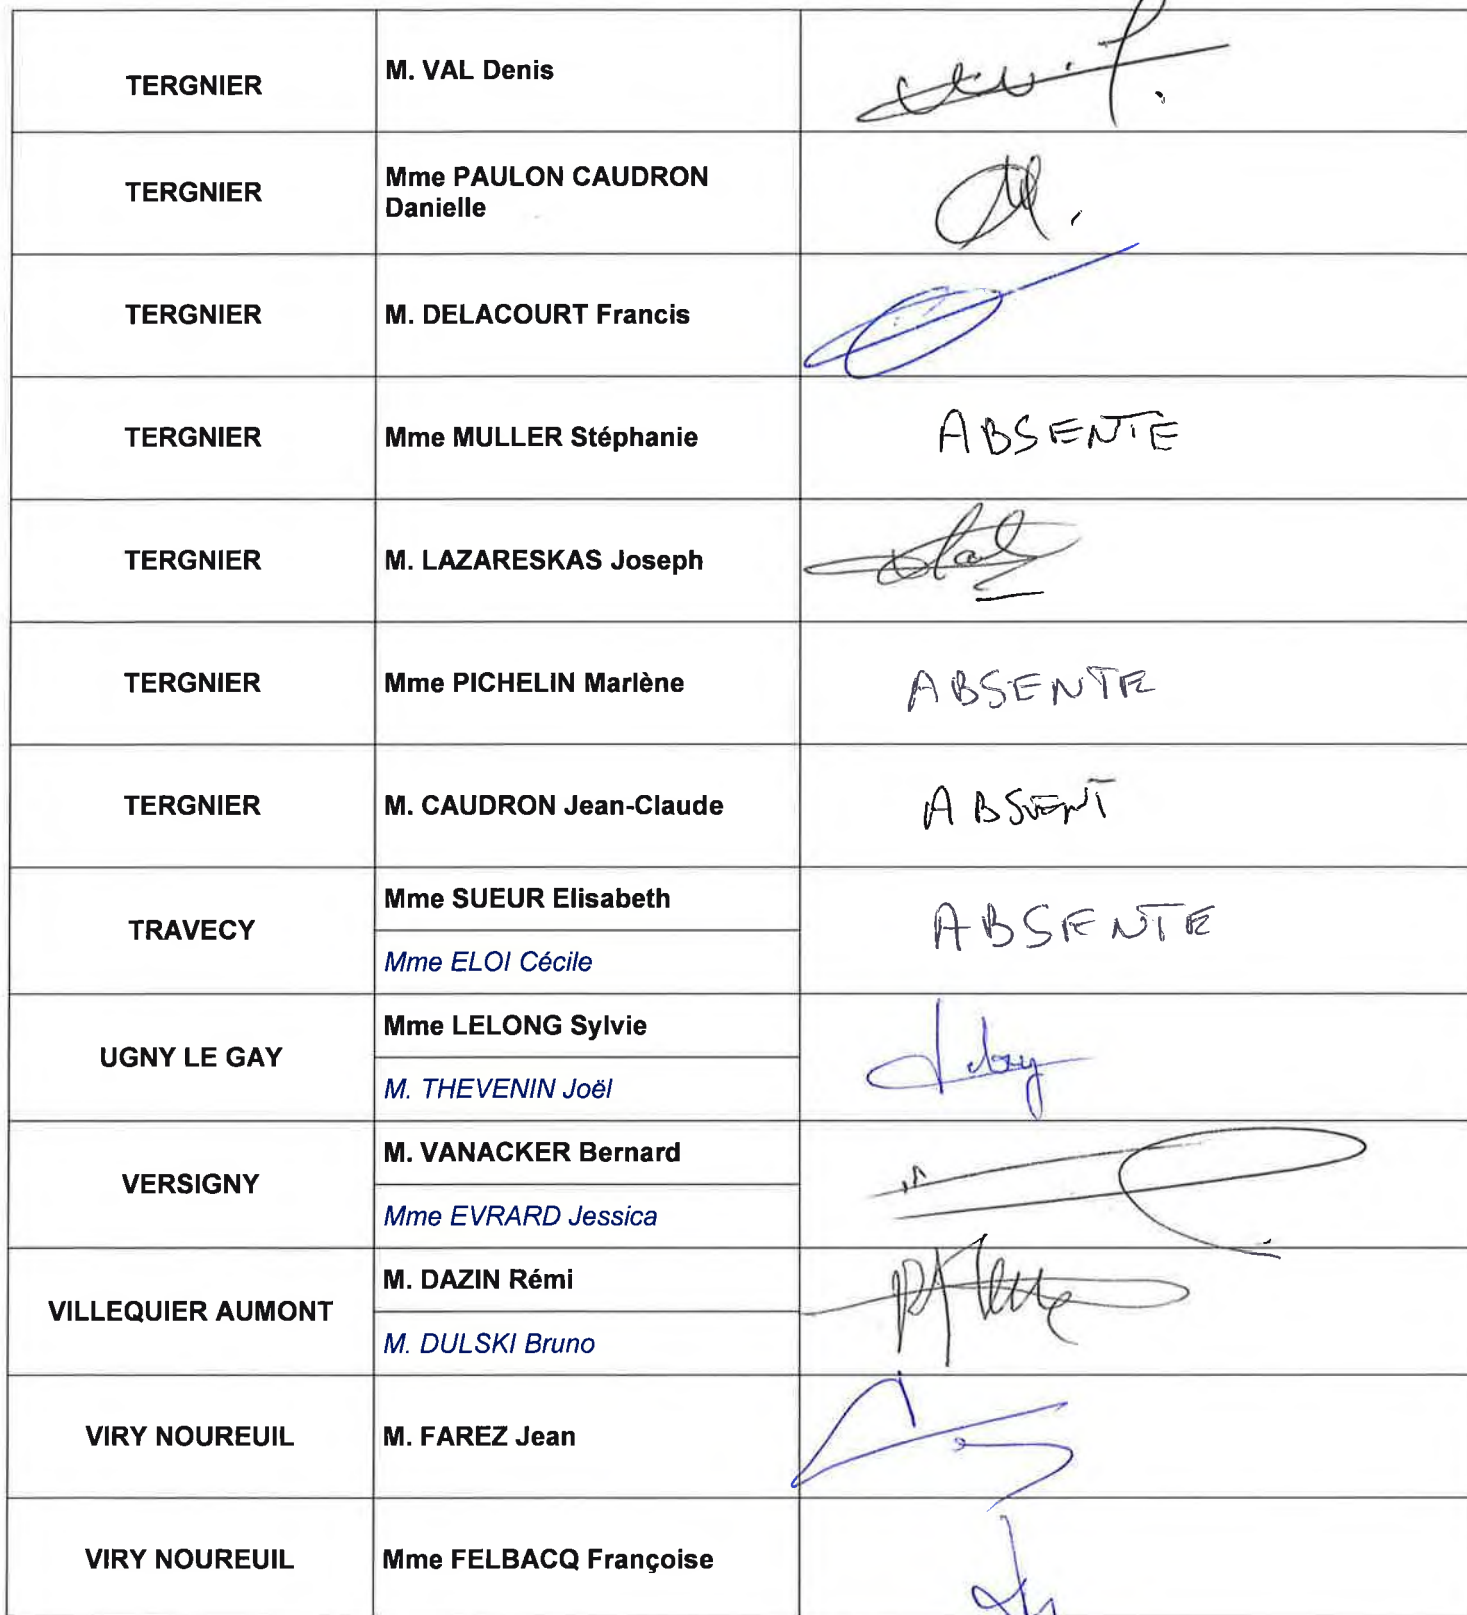 TERGNIER
M. VAL Denis
TERGNIER
Mme PAULON CAUDRON
Danielle
TERGNIER
M. DELACOURT Francis
TERGNIER
Mme MULLER Stéphanie
ABSENTE
TERGNIER
M. LAZARESKAS Joseph
TERGNIER
Mme PICHELIN Marlène
ABSENTE
TERGNIER
M. CAUDRON Jean-Claude
ABSENT
TRAVECY
Mme SUEUR Elisabeth
Mme ELOI Cécile
ABSENTE
UGNY LE GAY
Mme LELONG Sylvie
M. THEVENIN Joël
VERSIGNY
M. VANACKER Bernard
Mme EVRARD Jessica
VILLEQUIER AUMONT
M. DAZIN Rémi
M. DULSKI Bruno
VIRY NOUREUIL
M. FAREZ Jean
VIRY NOUREUIL
Mme FELBACQ Françoise